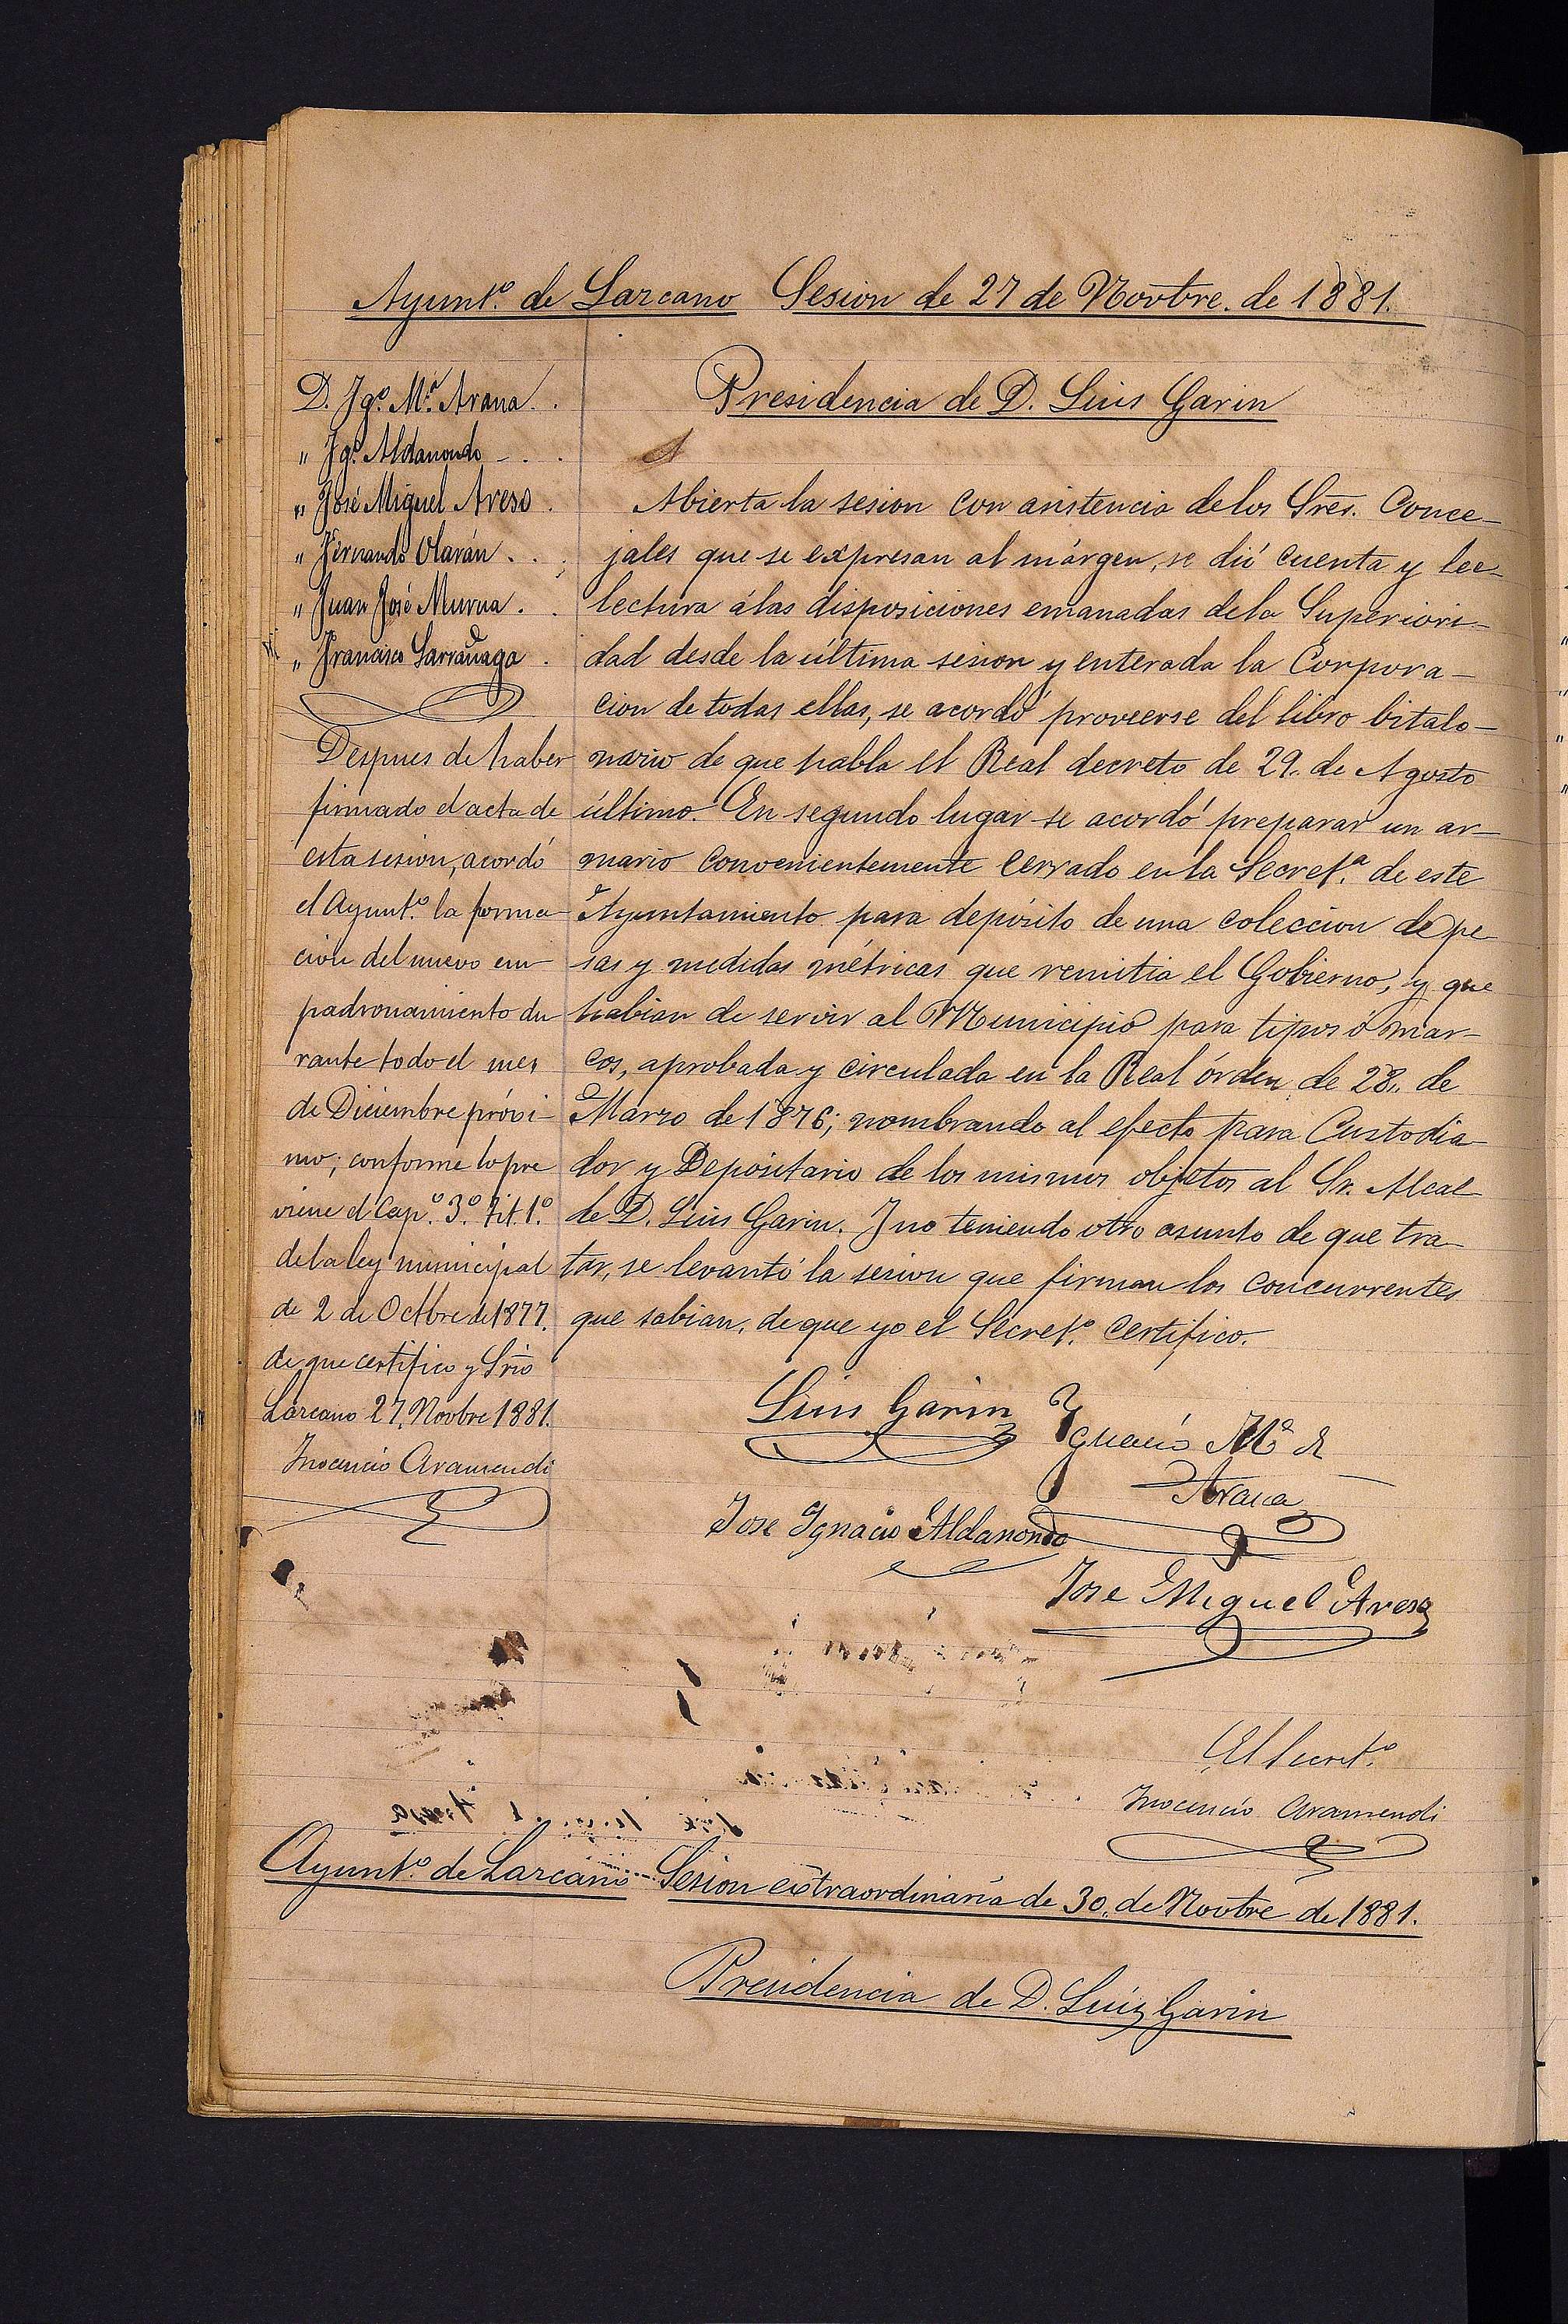 Ayunt.º de Lazcano Sesion de 27 de Novbre. de 1881.
D. Jg.º M.ª Arana. .
" Jg.º Aldanondo - . .
" José Miguel Areso .
" Fernando Olarán . . .
" Juan José Murua . .
" Francisco Larrañaga .
Despues de haber
firmado el acta de
esta sesion, acordó
el Ayunt.º la forma-
cion del nuevo em-
padronamiento du-
rante todo el mes
de Diciembre próxi-
mo; conforme lo pre
viene el Cap.º 3.º Tit. 1.º
de la ley municipal
de 2 de Octbre de 1877.
de que certifico y Srio
Lazcano 27, Novbre 1881.
Inocencio Aramendi
Presidencia de D. Luis Garin
A
Abierta la sesion con asistencia de los Sres. Conce-
jales que se expresan al márgen, se dió cuenta y lec-
lectura á las disposiciones emanadas de la Superiori-
dad desde la última sesion y enterada la Corpora-
cion de todas ellas, se acordó proveerse del libro bitalo-
nario de que habla el Real decreto de 29. de Agosto
último. En segundo lugar se acordó preparar un ar-
mario convenientemente cerrado en la Secret.ª de este
Ayuntamiento para depósito de una coleccion de pe
sas y medidas métricas que remitia el Gobierno, y que
habian de servir al Municipio para tipos ó mar-
cos, aprobada y circulada en la Real órden de 28,, de
Marzo de 1876; nombrando al efecto para Custodia-
dor y Depositario de los mismos objetos al Sr. Alcal-
de D. Luis Garin. Y no teniendo otro asunto de que tra-
tar, se levantó la sesion que firman los concurrentes
que sabian, de que yo el Secret.º certifico.
Luis Garin
Ygnacio M.ª de
Arana
Jose Ygnacio Aldanondo
Jose Miguel Areso
El Secret.º
Inocencio Aramendi
Ayunt.º de Lazcano Sesion extraordinaria de 30,, de Novbre de 1881.
Presidencia de D. Luis Garin